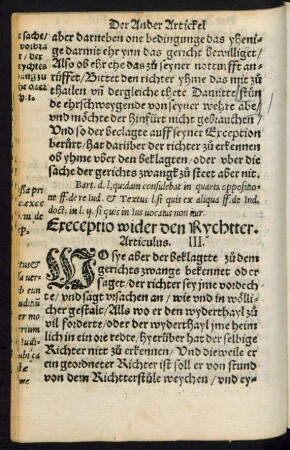 Der Ander Artickel
aber darneben one bedingunge das yheni-
ge darmit ehr ynn das gericht bewilliget/
Also ob ehr ehe das zu seyner nottrufft an-
rüffet/ Bittet den richter yhme das mit zů
thailen vñ dergleiche thete Damitte stün
de ehr schweygende von seyner wehre abe/
vnd möchte der hinfürt nicht gebrauchen/
Vnd so der beclagte auff seyner Exception
berůrt/ hat darüber der richter zů erkennen
ob yhme vber den Beklagten/ oder vber die
sache der gerichts zwangk zů steet aber nit.
Bart. d. l. quidam consulebat in quarta oppositio
ne ff. de re iud. & Textus l. si quis ex aliqua ff. de Iud.
doct. in l. ij. si quis in ius vocatus non iuer.
Exceptio wider den Rychtter.
Articulus. III.
WO sye aber der Beklagtte zů dem
gerichts zwange bekennet od er
saget/ der richter sey jme vordech
te/ vnd sagt vrsachen an/ wie vnd in wölli-
cher gestalt/ Alls wo er den wyderthayl zů
vil forderte/ oder der wyderthayl jme heim
lich in ein ore redte/ hyerüber hat der selbige
Richter nitt zů erkennen/ Vnd dieweile er
ein geordneter Richter ist soll er von stund
von dem Richtterstůle weychen/ vnd ey-